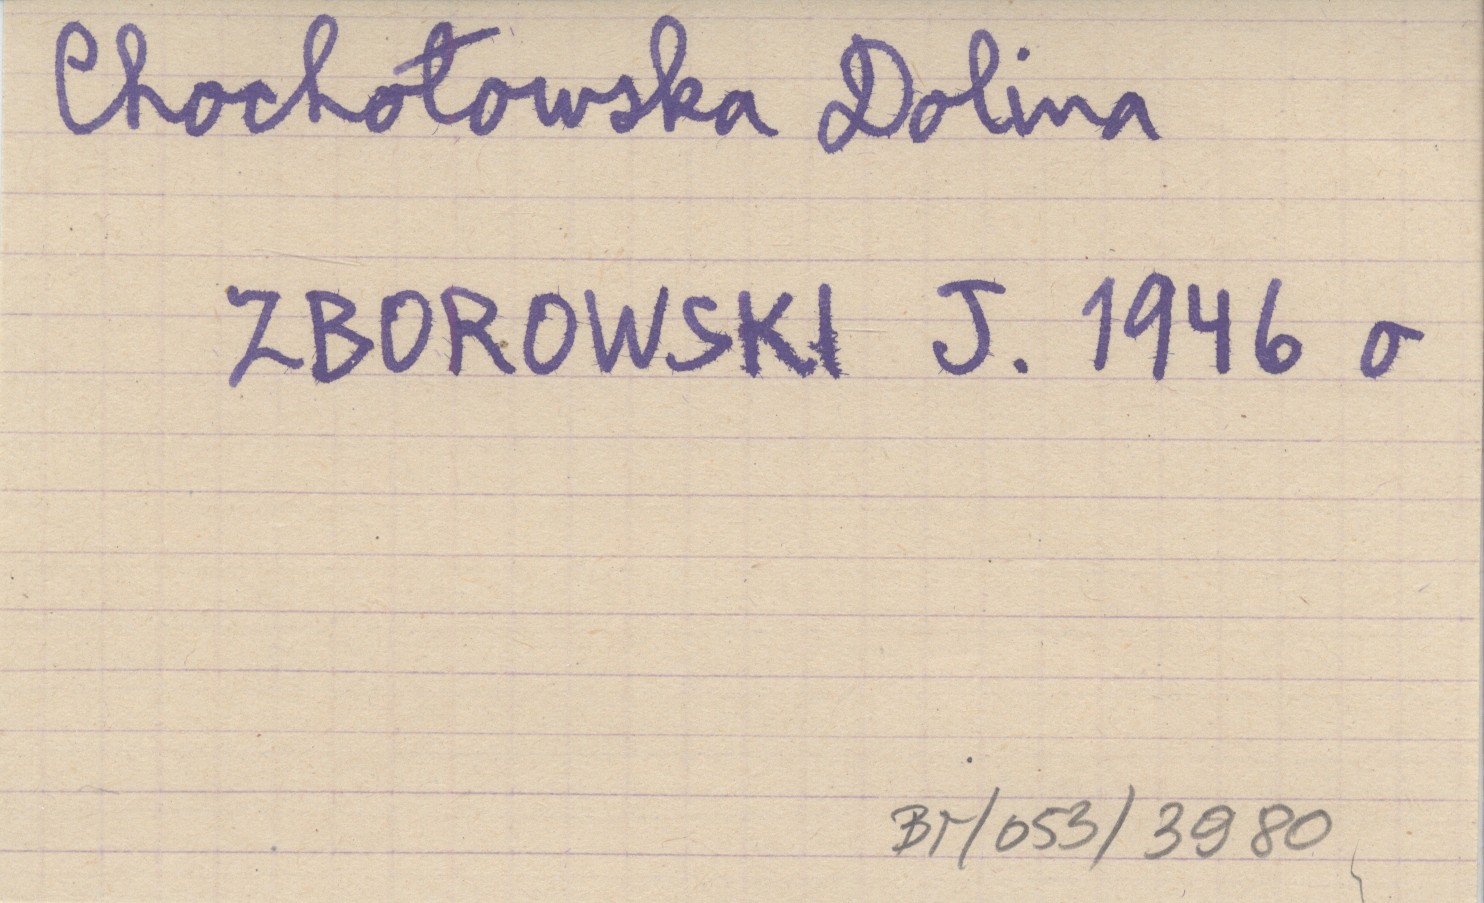 Chochołowska Dolina
ZBOROWSKI J. 1946 o
BT/053/3980